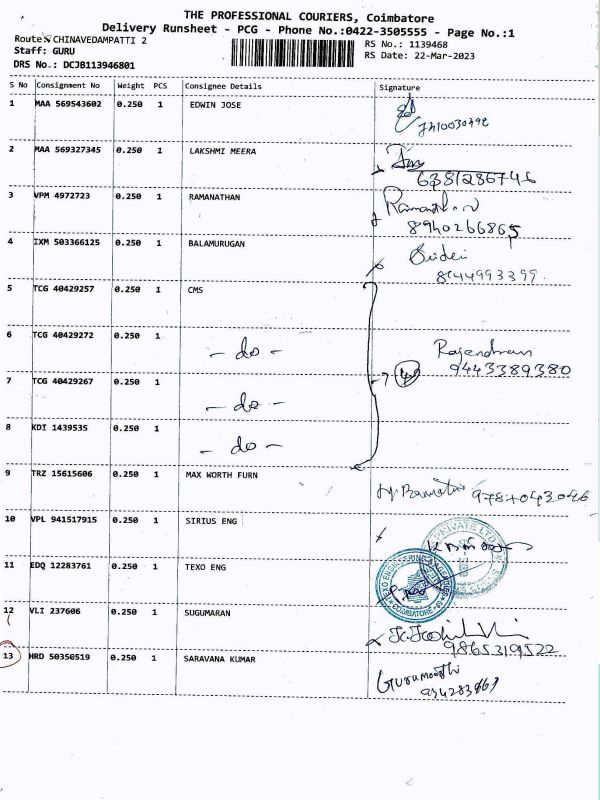 THE PROFESSIONAL COURIERS, Coimbatore
Delivery Runsheet - PCG - Phone No.:0422-3505555 - Page No.:1
Route: CHINAVEDAMPATTI 2
RS No.: 1139468
Staff: GURU
RS Date: 22-Mar-2023
DRS No.: DCJB113946801
S No Consignment No Weight PCS Consignee Details Signature
1 MAA 569543602 0.250 1 EDWIN JOSE
2 MAA 569327345 0.250 1 LAKSHMI MEERA
6381286746
3 VPM 4972723 0.250 1 RAMANATHAN
8940266865
4 IXM 503366125 0.250 1 BALAMURUGAN
8144993399
5 TCG 40429257 0.250 1 CMS
6 TCG 40429272 0.250 1 - do - Rajendran
9443389380
7 TCG 40429267 0.250 1 - do - 4
8 KDI 1439535 0.250 1 - do -
9 TRZ 15615606 0.250 1 MAX WORTH FURN
9787043046
10 VPL 941517915 0.250 1 SIRIUS ENG
11 EDQ 12283761 0.250 1 TEXO ENG
12 VLI 237606 0.250 1 SUGUMARAN
9865319522
13 HRD 50350519 0.250 1 SARAVANA KUMAR
Gurumoorthi